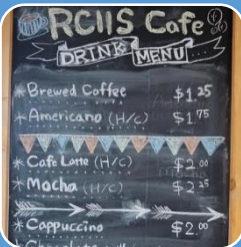 RCIIS Cafe
DRINK MENU
*Brewed Coffee $1.25
*Americano (H/C) $1.75
*Cafe Latte (H/C) $2.00
*Mocha (H/C) $2.25
*Cappuccino $2.00